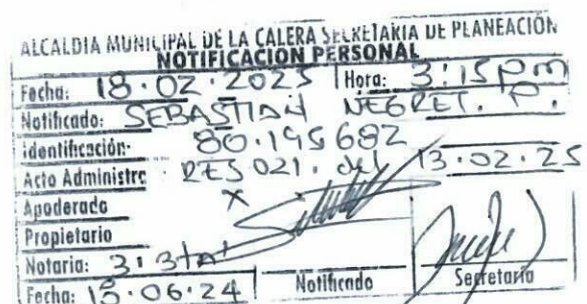 ALCALDIA MUNICIPAL DE LA CALERA SECRETARIA DE PLANEACIÓN
NOTIFICACION PERSONAL
Fecha: 18.02.2025 Hora: 3:15 pm
Notificado: SEBASTIAN NEGRET. P.
identificación: 80.195682
Acto Administrc RES 021. del 13.02.25
Apoderado X
Propietario
Notaria: 3:3ta
Fecha: 18.06.24 Notificado Secretaria